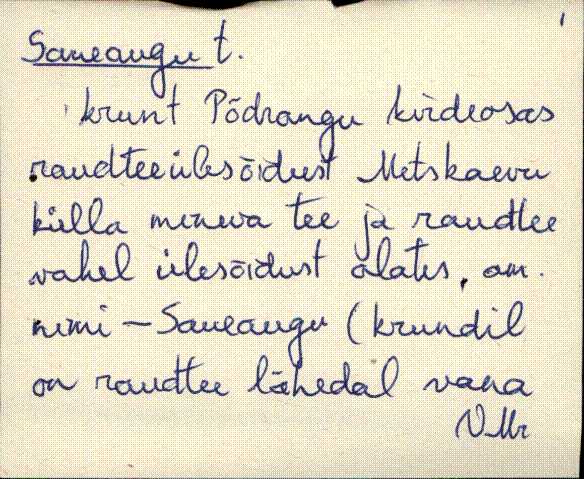 Saueaugu t.
krunt Põdrangu kirdeosas
raudteeülesõidust Metskaevu
külla mineva tee ja raudtee
vahel ülesõidust alates, am.
nimi – Saueaugu (krundil
on raudtee lähedal vana
VMr